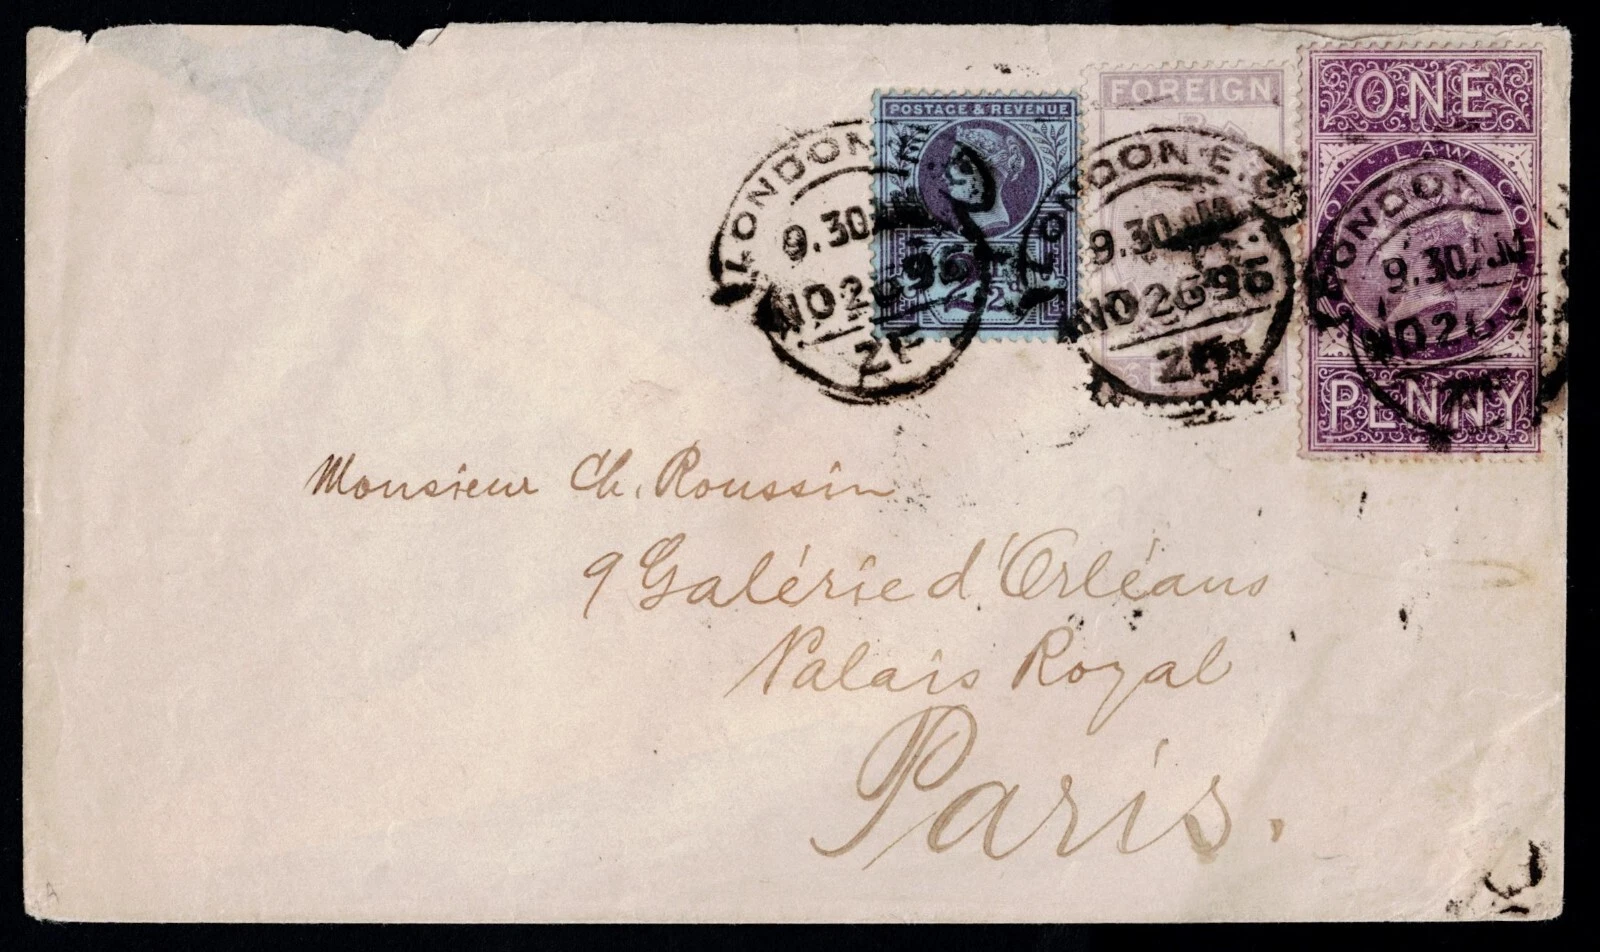 POSTAGE & REVENUE
2½d
FOREIGN
ONE
LAW
PENNY
LONDON
9.30
NO 26 96
ZF
LONDON E.C
9.30 AM
NO 26 96
LONDON
9.30 AM
NO 26
Monsieur Ch. Roussin
9 Galérie d'Orléans
Palais Royal
Paris.